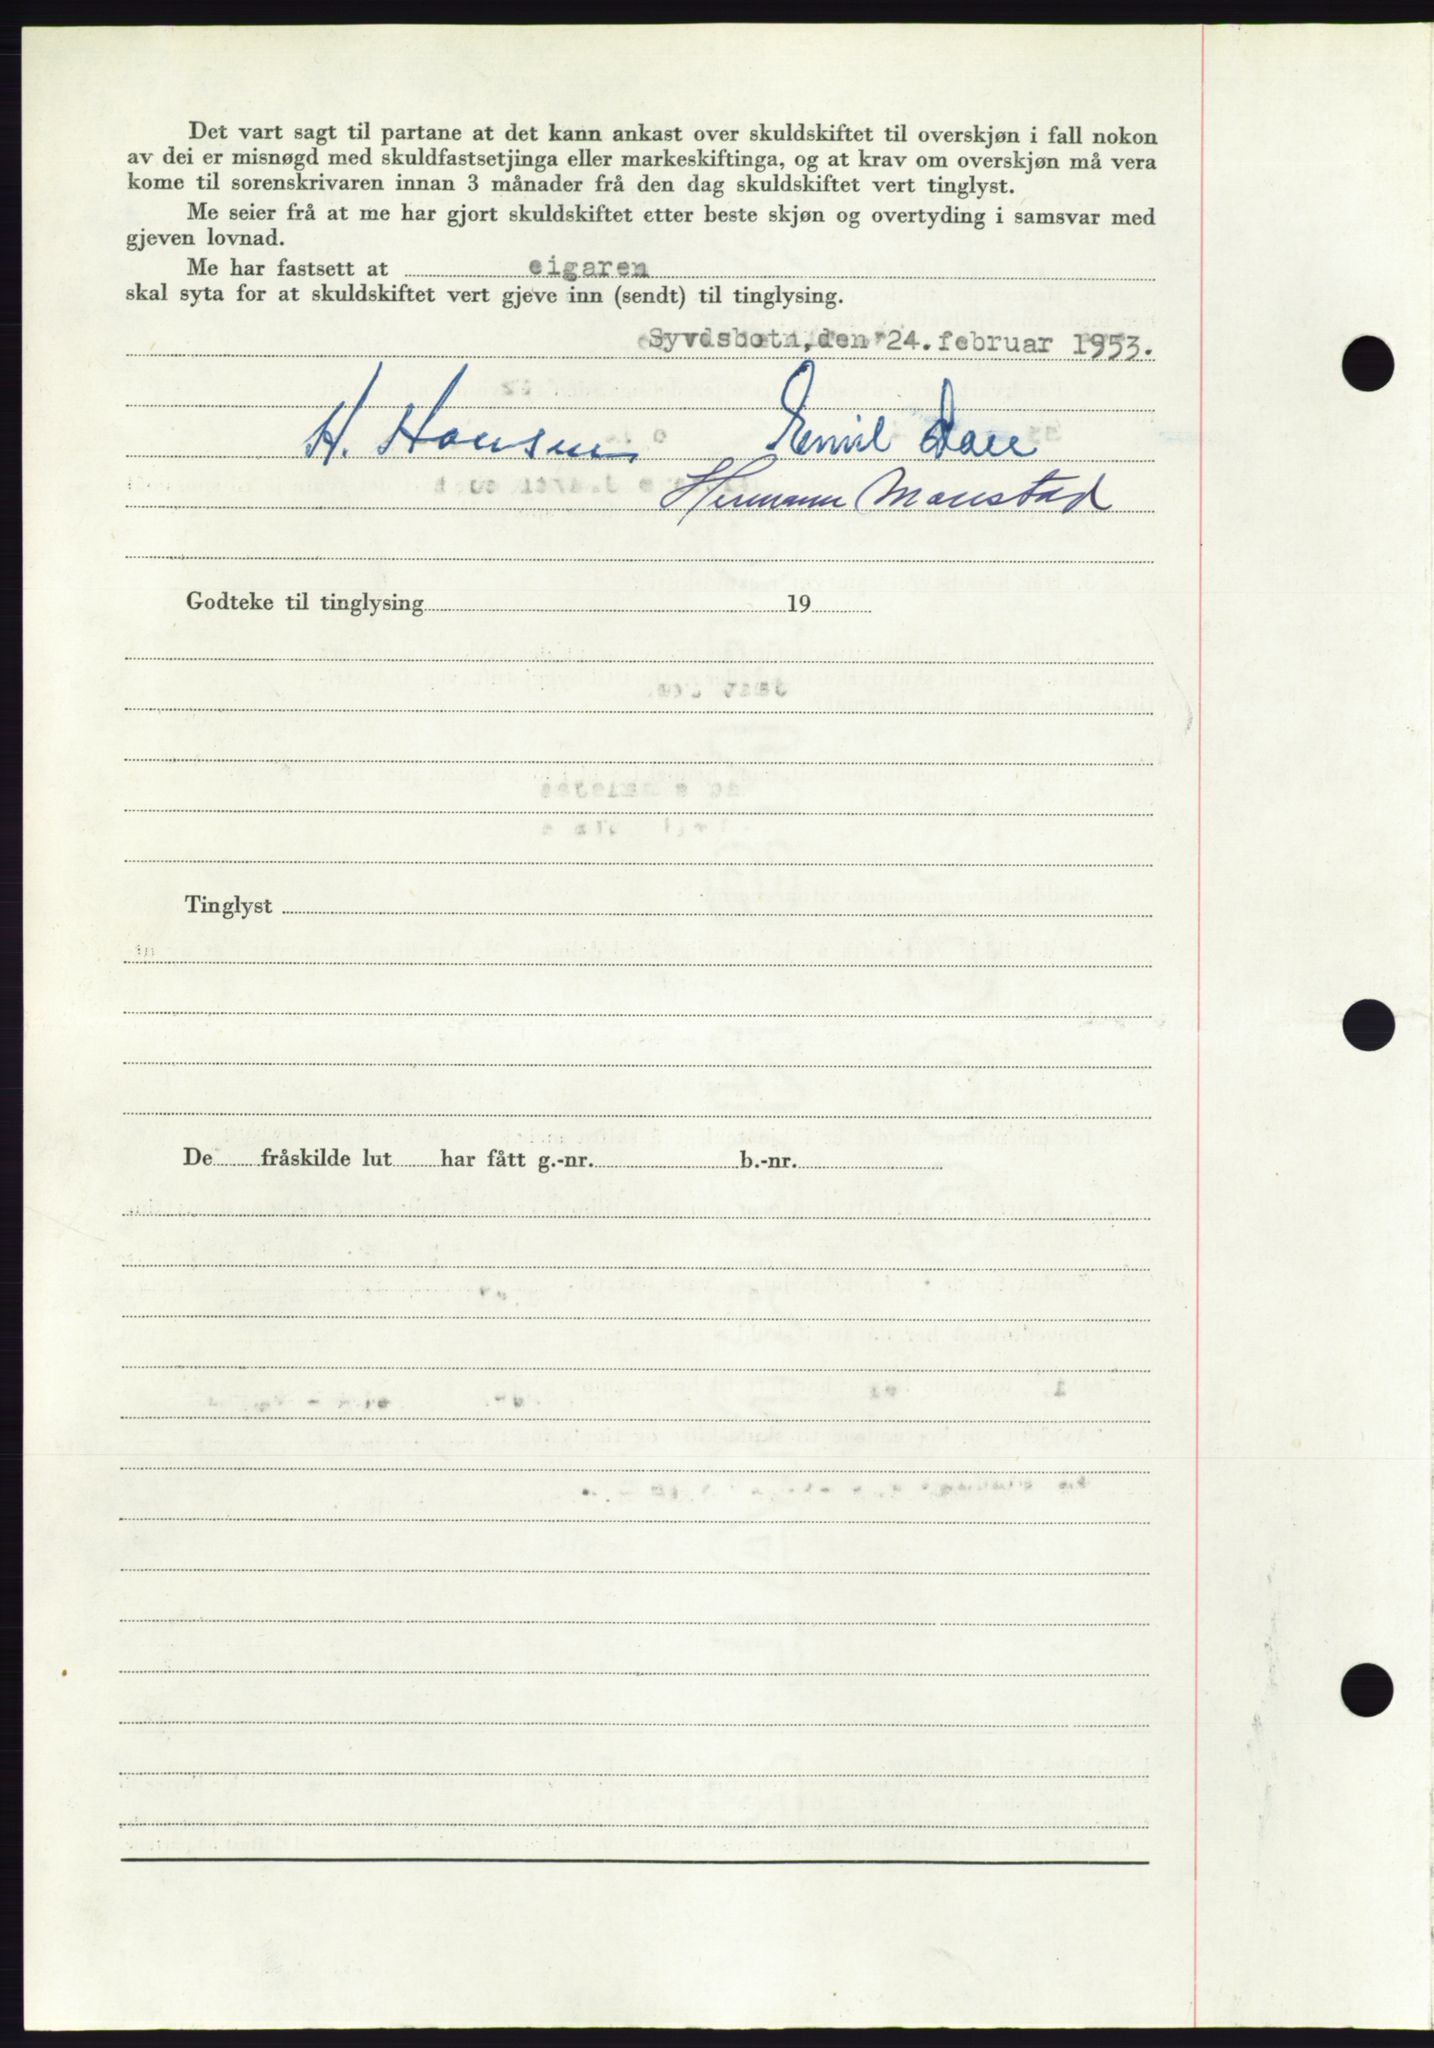 Det vart sagt til partane at det kann ankast over skuldskiftet til overskjøn i fall nokon
av dei er misnøgd med skuldfastsetjinga eller markeskiftinga, og at krav om overskjøn må vera
kome til sorenskrivaren innan 3 månader frå den dag skuldskiftet vert tinglyst.
Me seier frå at me har gjort skuldskiftet etter beste skjøn og overtyding i samsvar med
gjeven lovnad.
Me har fastsett at eigaren
skal syta for at skuldskiftet vert gjeve inn (sendt) til tinglysing.
Syvdsbotn, den 24. februar 1953.
H. Hansen Emil
Hermann
Godteke til tinglysing 19
Tinglyst
De fråskilde lut har fått g.-nr. b.-nr.